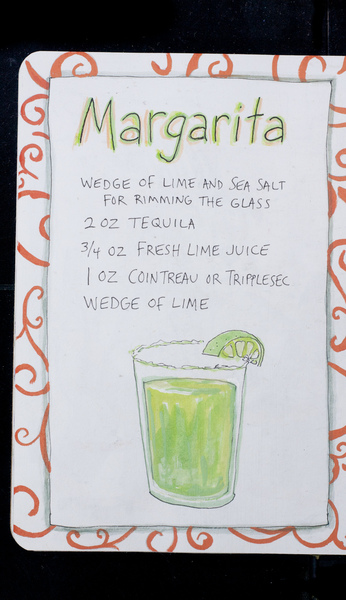 Margarita
WEDGE OF LIME AND SEA SALT
FOR RIMMING THE GLASS
2 OZ TEQUILA
3/4 OZ FRESH LIME JUICE
1 OZ COINTREAU OR TRIPPLESEC
WEDGE OF LIME